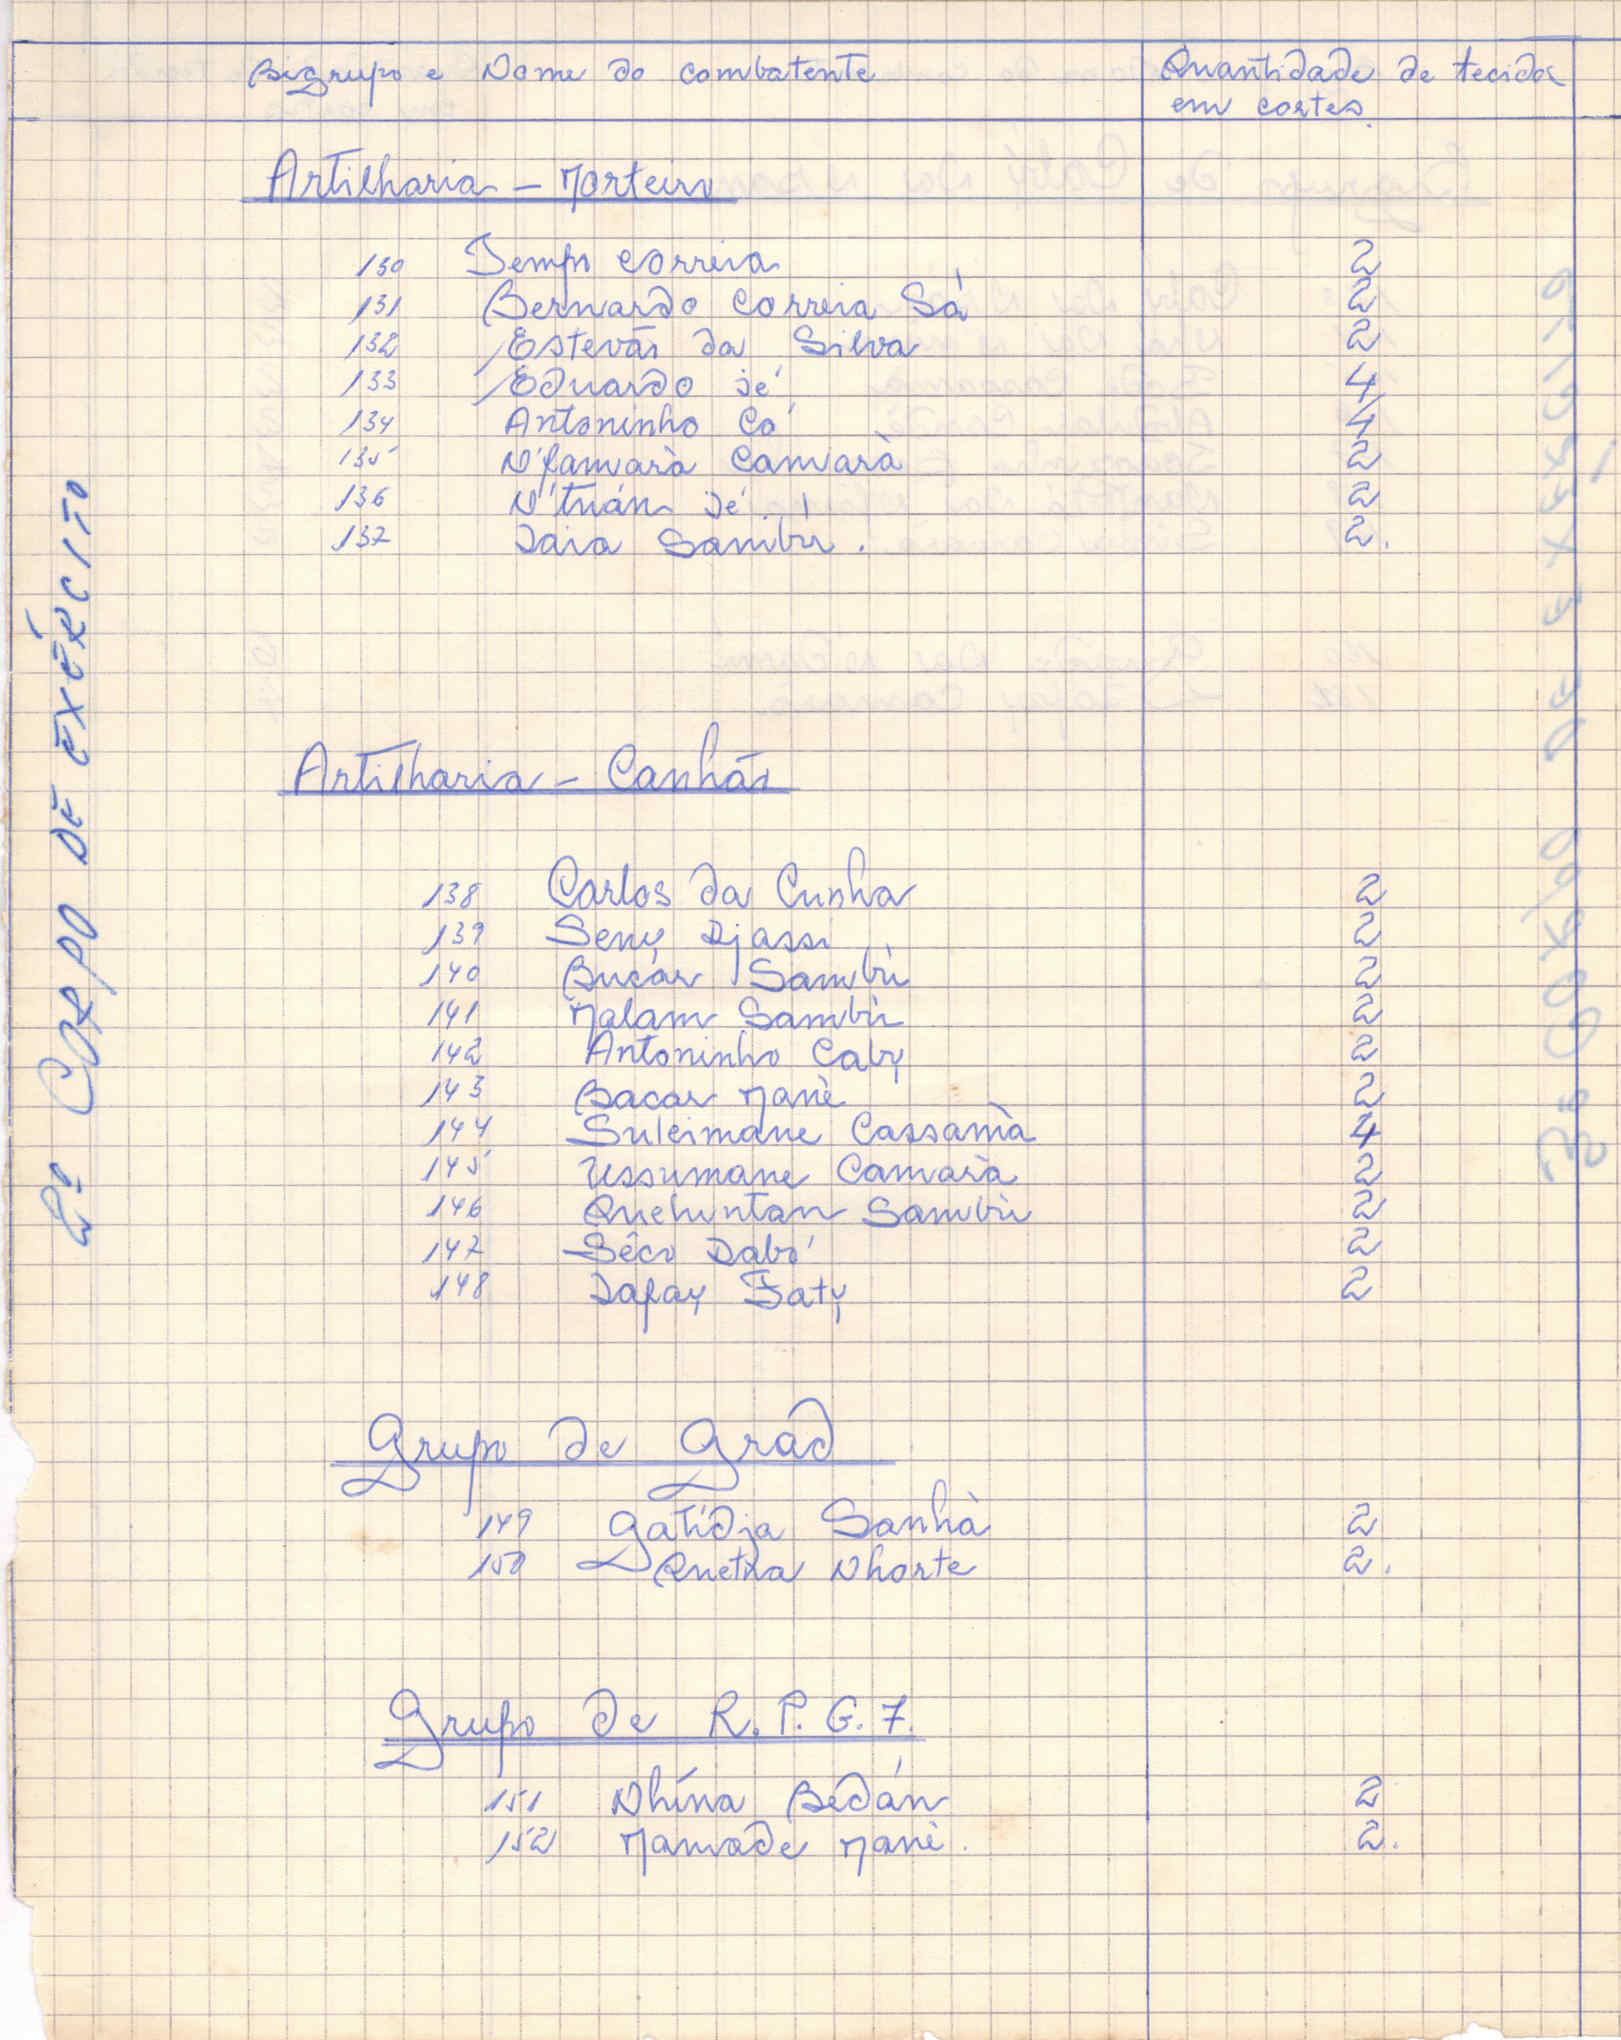 Bigrupo e Nome do combatente
Quantidade de tecidos
em cortes
Artilharia - Morteiro
130 Tempo Correia 2
131 Bernardo Correia Sá 2
132 Estevão da Silva 2
133 Eduardo Jé 4
134 Antoninho Có 4
135 N'famará Camará 2
136 N'tuán Jé 2
137 Daia Sambú. 2.
Artilharia - Canhão
138 Carlos da Cunha 2
139 Seny Djassi 2
140 Bucár Sambú 2
141 Malam Sambú 2
142 Antoninho Caby 2
143 Bacar Mané 2
144 Suleimane Cassamà 4
145 Ussumane Camarà 2
146 Quehuntan Sambú 2
147 Sêco Dabó 2
148 Dafay Faty 2
Grupo de Grád
149 Gatídja Sanhà 2
150 Quetxa Nhorte 2.
Grupo de R.P.G.7.
151 Nhína Bedán 2
152 Mamade Mané. 2.
2º CORPO DE EXÉRCITO